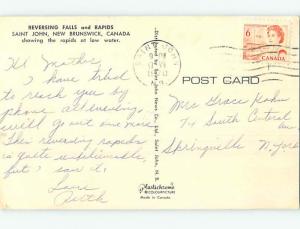 REVERSING FALLS and RAPIDS
SAINT JOHN, NEW BRUNSWICK, CANADA
showing the rapids at low water.
Hi Mother
I have tried
to reach you by
phone all evening,
will try it once more
The reversing rapids
is quite unbelievable,
but I saw it.
Love
Ruth
SAINT JOHN
PM
6
CANADA
POST CARD
Mrs Grace Hahn
74 South Central
Ave
Springville N. York
Plastichrome
COLOURPICTURE
Made in Canada